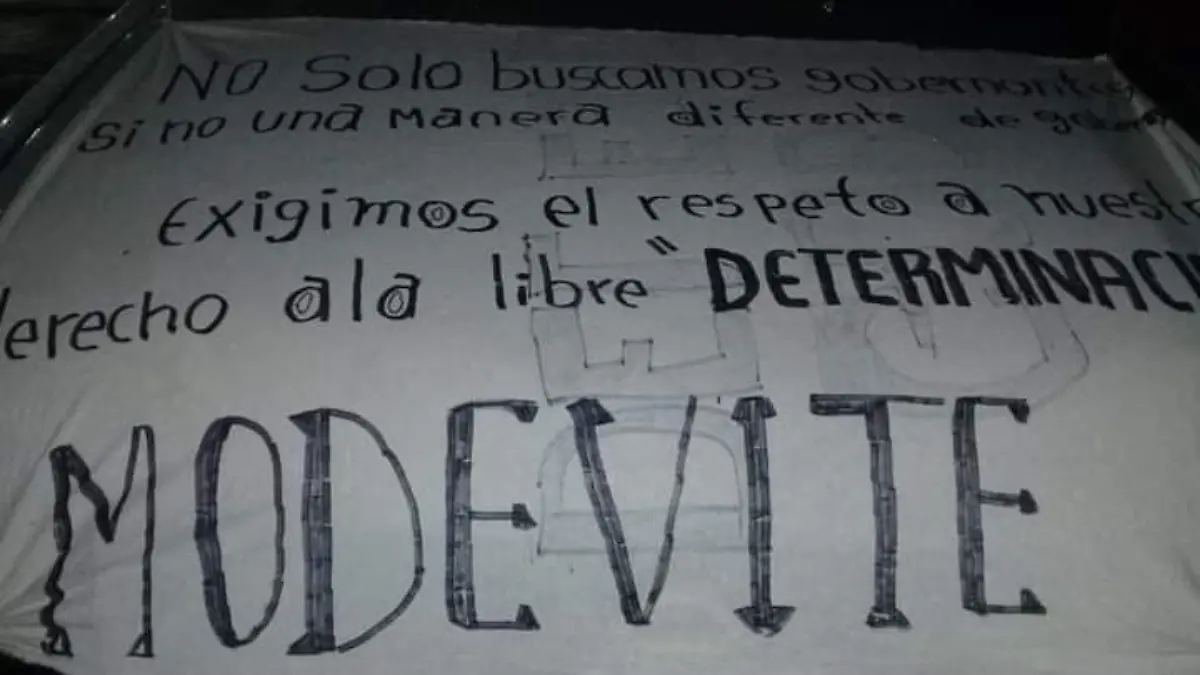 NO Solo buscamos gobernantes
si no una manera diferente de
Exigimos el respeto a nuestr
derecho ala libre "DETERMINACI
MODEVITE